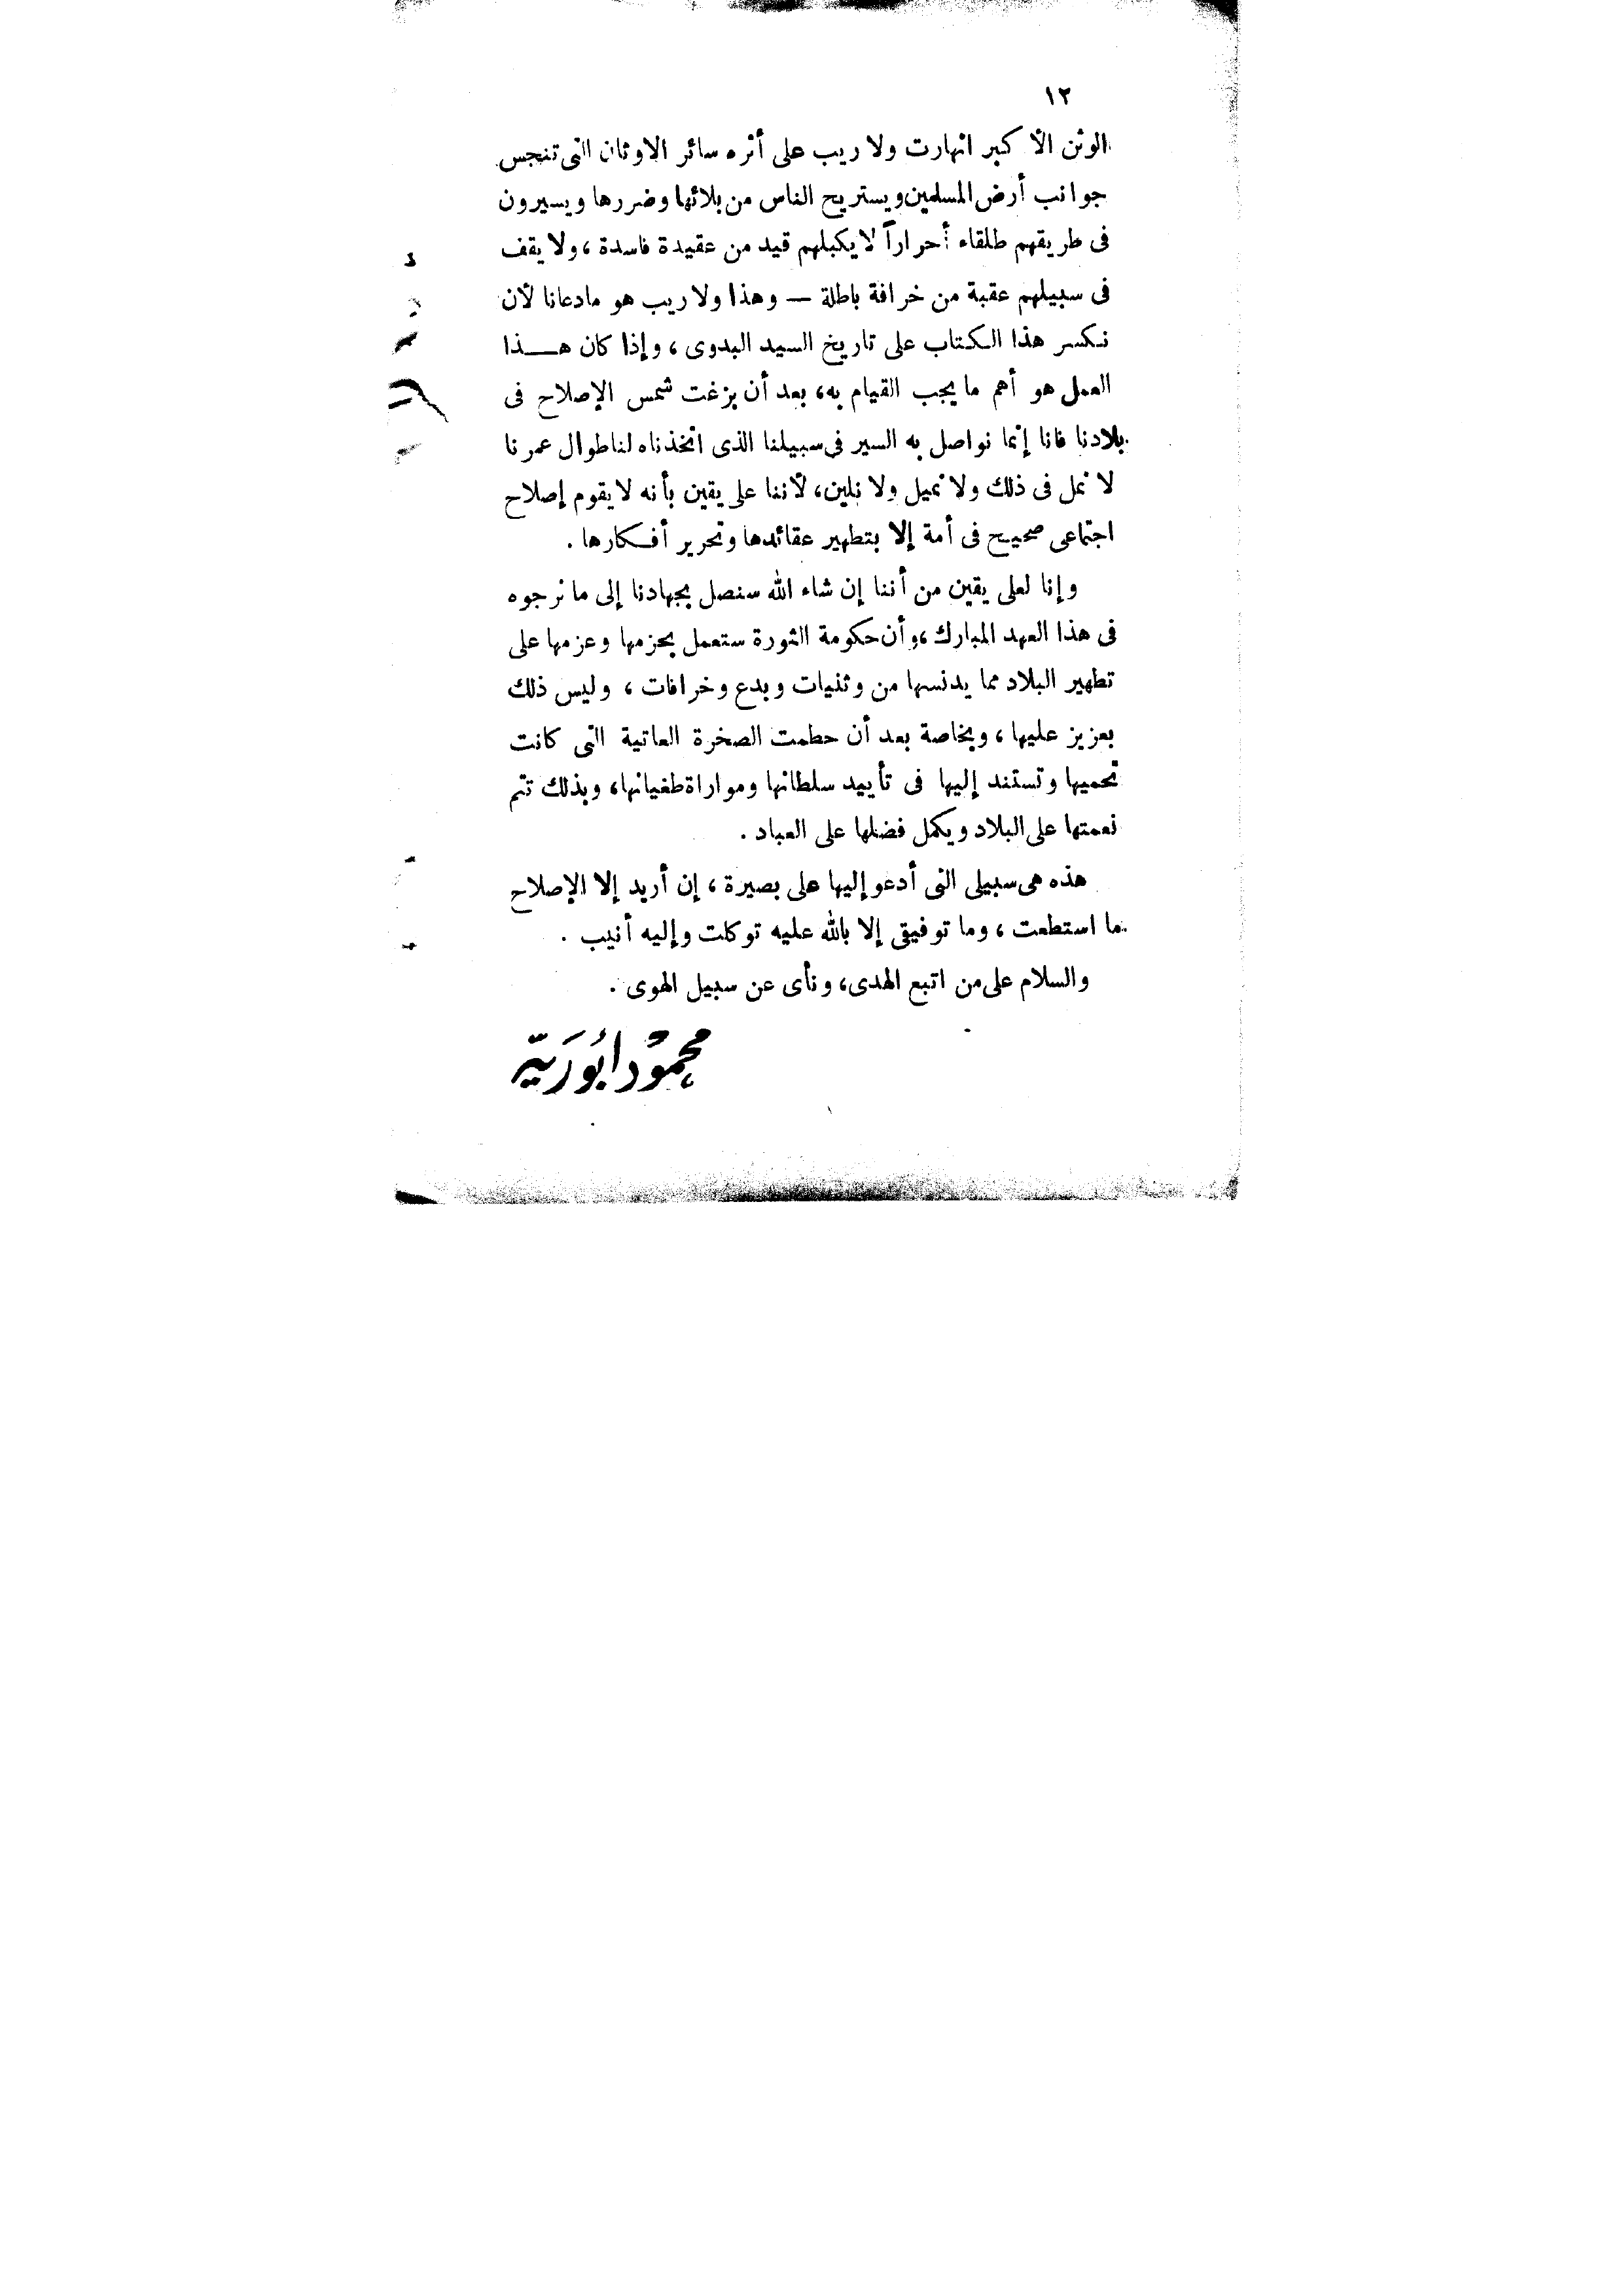 ١٢
الوثن الأكبر انهارت ولا ريب على أثره سائر الاوثان التى تنجس
جوانب أرض المسلمين ويستريح الناس من بلائها وضررها ويسيرون
فى طريقهم طلقاء أحراراً لا يكبلهم قيد من عقيدة فاسدة ، ولا يقف
فى سبيلهم عقبة من خرافة باطلة — وهذا ولا ريب هو مادعانا لأن
نكسر هذا الكتاب على تاريخ السيد البدوى ، وإذا كان هـــذا
العمل هو أهم ما يجب القيام به، بعد أن بزغت شمس الإصلاح فى
بلادنا فانا إنما نواصل به السير فى سبيلنا الذى اتخذناه لنا طوال عمرنا
لا نمل فى ذلك ولا نميل ولا نلين، لأننا على يقين بأنه لا يقوم إصلاح
اجتماعى صحيح فى أمة إلا بتطهير عقائدها وتحرير أفــكارها .
وإنا لعلى يقين من أننا إن شاء الله سنصل بجهادنا إلى ما نرجوه
فى هذا العهد المبارك ، وأن حكومة الثورة ستعمل بحزمها وعزمها على
تطهير البلاد مما يدنسها من وثنيات وبدع وخرافات ، وليس ذلك
بعزيز عليها ، وبخاصة بعد أن حطمت الصخرة العاتية التى كانت
تحميها وتستند إليها فى تأييد سلطانها ومواراة طغيانها، وبذلك تتم
نعمتها على البلاد ويكمل فضلها على العباد .
هذه هى سبيلى التى أدعو إليها على بصيرة ، إن أريد إلا الإصلاح
ما استطعت ، وما توفيقى إلا بالله عليه توكلت وإليه أنيب .
والسلام على من اتبع الهدى، ونأى عن سبيل الهوى .
محمُود ابُورَيّه